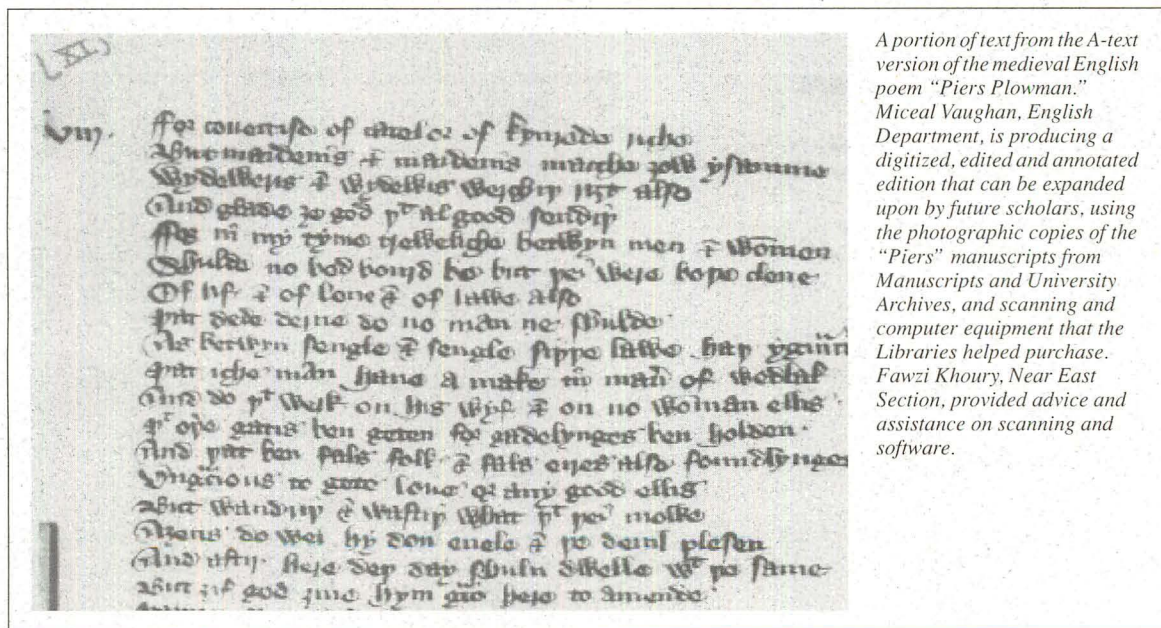 (XI)
viij.
ffor coueitise of catel or of kynrede riche
But maidenis & maidenis macche ȝow ysamme
Wydeweris & wydewis werchiþ riȝt also
And glade ȝe god þt al good sendiþ
ffor in my tyme treweliche betwyn men & women
Schulde no bed bourd be but þei were boþe clene
Of lif & of loue & of lawe also
Þat dede derne do no man ne schulde
As betwyn sengle & sengle siþþe lawe haþ
Þat iche man haue a make in of wedlak
And do þt werk on his wyf & on no woman ellis
Þt oþe gatis ben geten for gadelynges ben holden
And þat ben fals folk & fals eyres also foundlynges
Vngracious to gete loue or any good ellis
But wandriþ & wastiþ what þt þei mowe
Aȝens do wel hy don euele & þe deuil plesen
And aftir here deþ day schuln dwelle wt þe same
But ȝif god ȝiue hym here to amende
A portion of text from the A-text
version of the medieval English
poem “Piers Plowman.”
Miceal Vaughan, English
Department, is producing a
digitized, edited and annotated
edition that can be expanded
upon by future scholars, using
the photographic copies of the
“Piers” manuscripts from
Manuscripts and University
Archives, and scanning and
computer equipment that the
Libraries helped purchase.
Fawzi Khoury, Near East
Section, provided advice and
assistance on scanning and
software.